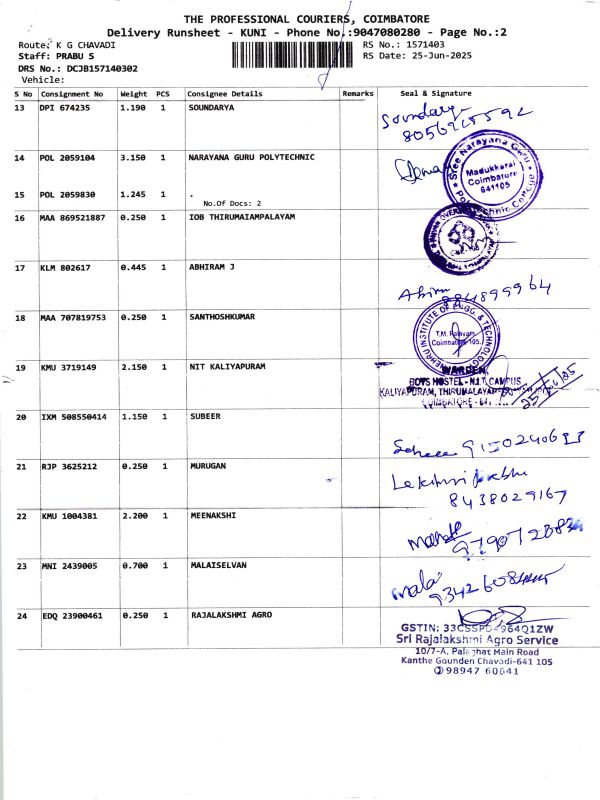 THE PROFESSIONAL COURIERS, COIMBATORE
Delivery Runsheet - KUNI - Phone No.:9047080280 - Page No.:2
Route: K G CHAVADI
RS No.: 1571403
Staff: PRABU S
RS Date: 25-Jun-2025
DRS No.: DCJB157140302
Vehicle:
S No Consignment No Weight PCS Consignee Details Remarks Seal & Signature
13 DPI 674235 1.190 1 SOUNDARYA
14 POL 2059104 3.150 1 NARAYANA GURU POLYTECHNIC
Sree Narayana Guru Polytechnic College
Madukkarai
Coimbatore
641105
15 POL 2059830 1.245 1 .
No.Of Docs: 2
16 MAA 869521887 0.250 1 IOB THIRUMAIAMPALAYAM
17 KLM 802617 0.445 1 ABHIRAM J
18 MAA 707819753 0.250 1 SANTHOSHKUMAR
NEHRU INSTITUTE OF ENGG. & TECHNOLOGY
T.M. Palayam
Coimbatore 105.
19 KMU 3719149 2.150 1 NIT KALIYAPURAM
WARDEN,
BOYS HOSTEL - N.I.T. CAMPUS
KALIYAPURAM,
COIMBATORE - 641
25/06/25
20 IXM 508550414 1.150 1 SUBEER
21 RJP 3625212 0.250 1 MURUGAN
8438029167
22 KMU 1004381 2.200 1 MEENAKSHI
23 MNI 2439005 0.700 1 MALAISELVAN
mala
24 EDQ 23900461 0.250 1 RAJALAKSHMI AGRO
GSTIN:
Sri Rajalakshmi Agro Service
10/7-A, Palaghat Main Road
Kanthe Gounden Chavadi-641 105
98947 60641